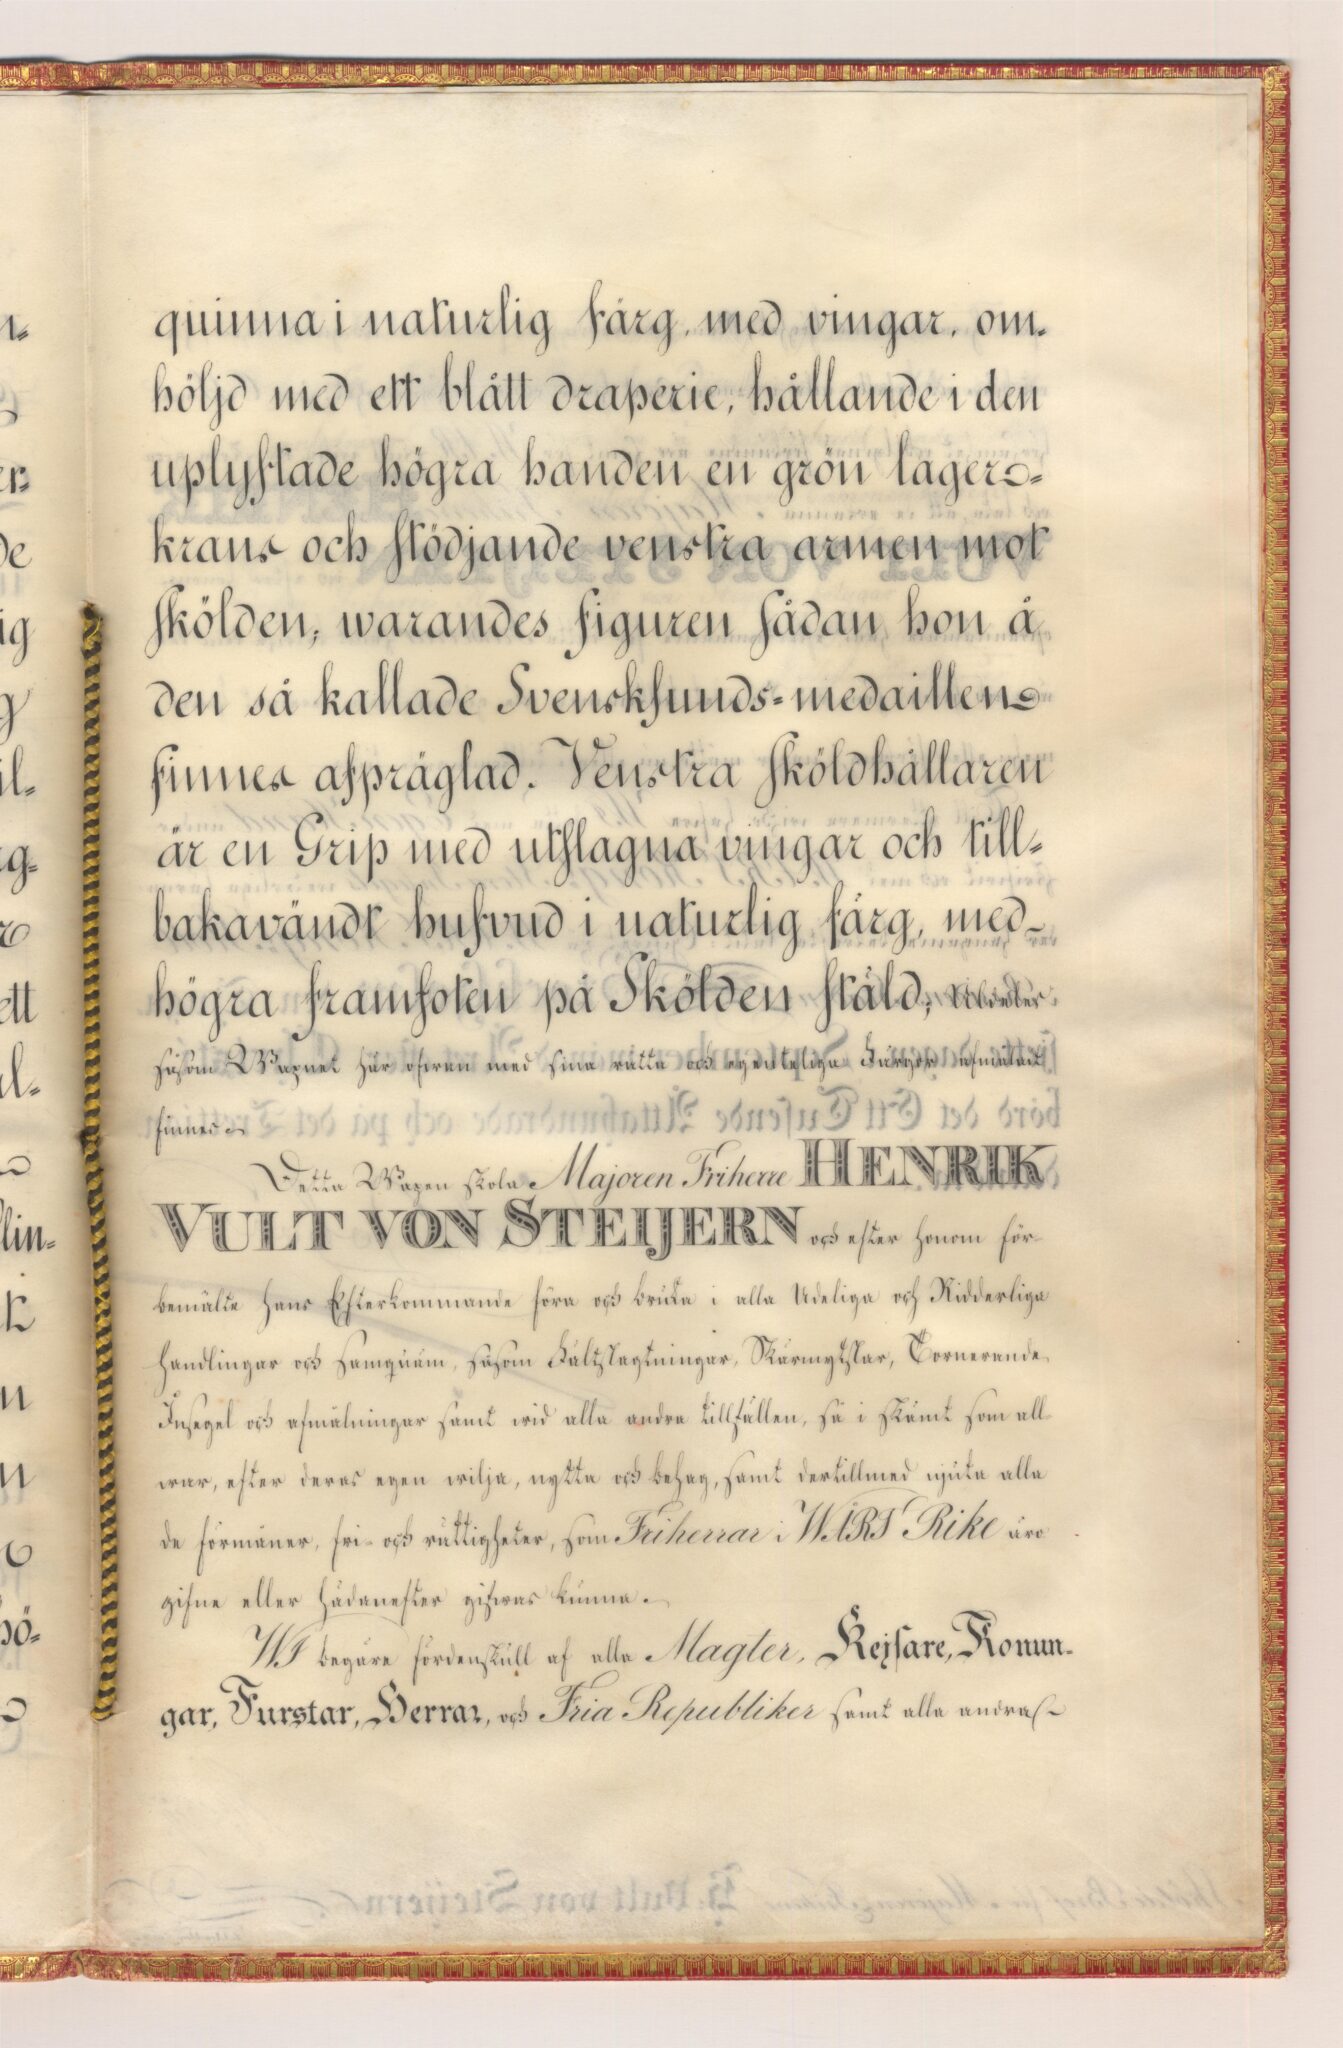 quinna i naturlig färg, med vingar, om-
höljd med ett blått draperie, hållande i den
uplyftade högra handen en grön lager-
krans och stödjande venstra armen mot
skölden, warandes figuren sådan hon å
den så kallade Svensksunds-medaillen
finnes afpräglad. Venstra sköldhållaren
är en Grip med utslagna vingar och till-
bakavändt hufvud i naturlig färg, med
högra framfoten på Skölden stäld; Aldeles
såsom Wapnet här ofwan med sina rätta och egenteliga Färgor afmåladt
finnes.
Detta Wapen skola Majoren Friherre HENRIK
VULT VON STEIJERN och efter honom för-
bemälte hans Efterkommande föra och bruka i alla Adeliga och Ridderliga
handlingar och samqväm, såsom Fältslagtningar, Skärmytslar, Tornerande
Insegel och afmålningar samt wid alla andra tillfällen, så i skämt som all-
war, efter deras egen wilja, nytta och behag, samt dertillmed njuta alla
de förmåner, fri- och rättigheter, som Friherrar i WÅRT Rike äro
gifne eller hädanefter gifwas kunna.
WI begäre fördenskull af alla Magter, Kejsare, Konun-
gar, Furstar, Herrar, och Fria Republiker samt alla andra